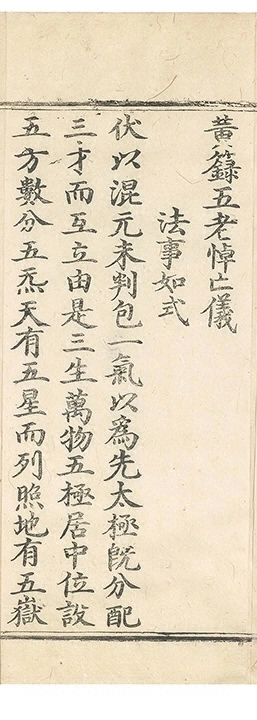 黃籙五老悼亡儀
法事如式
伏以混元未判包一氣以爲先太極旣分配
三才而互立由是三生萬物五極居中位設
五方數分五炁天有五星而列照地有五嶽